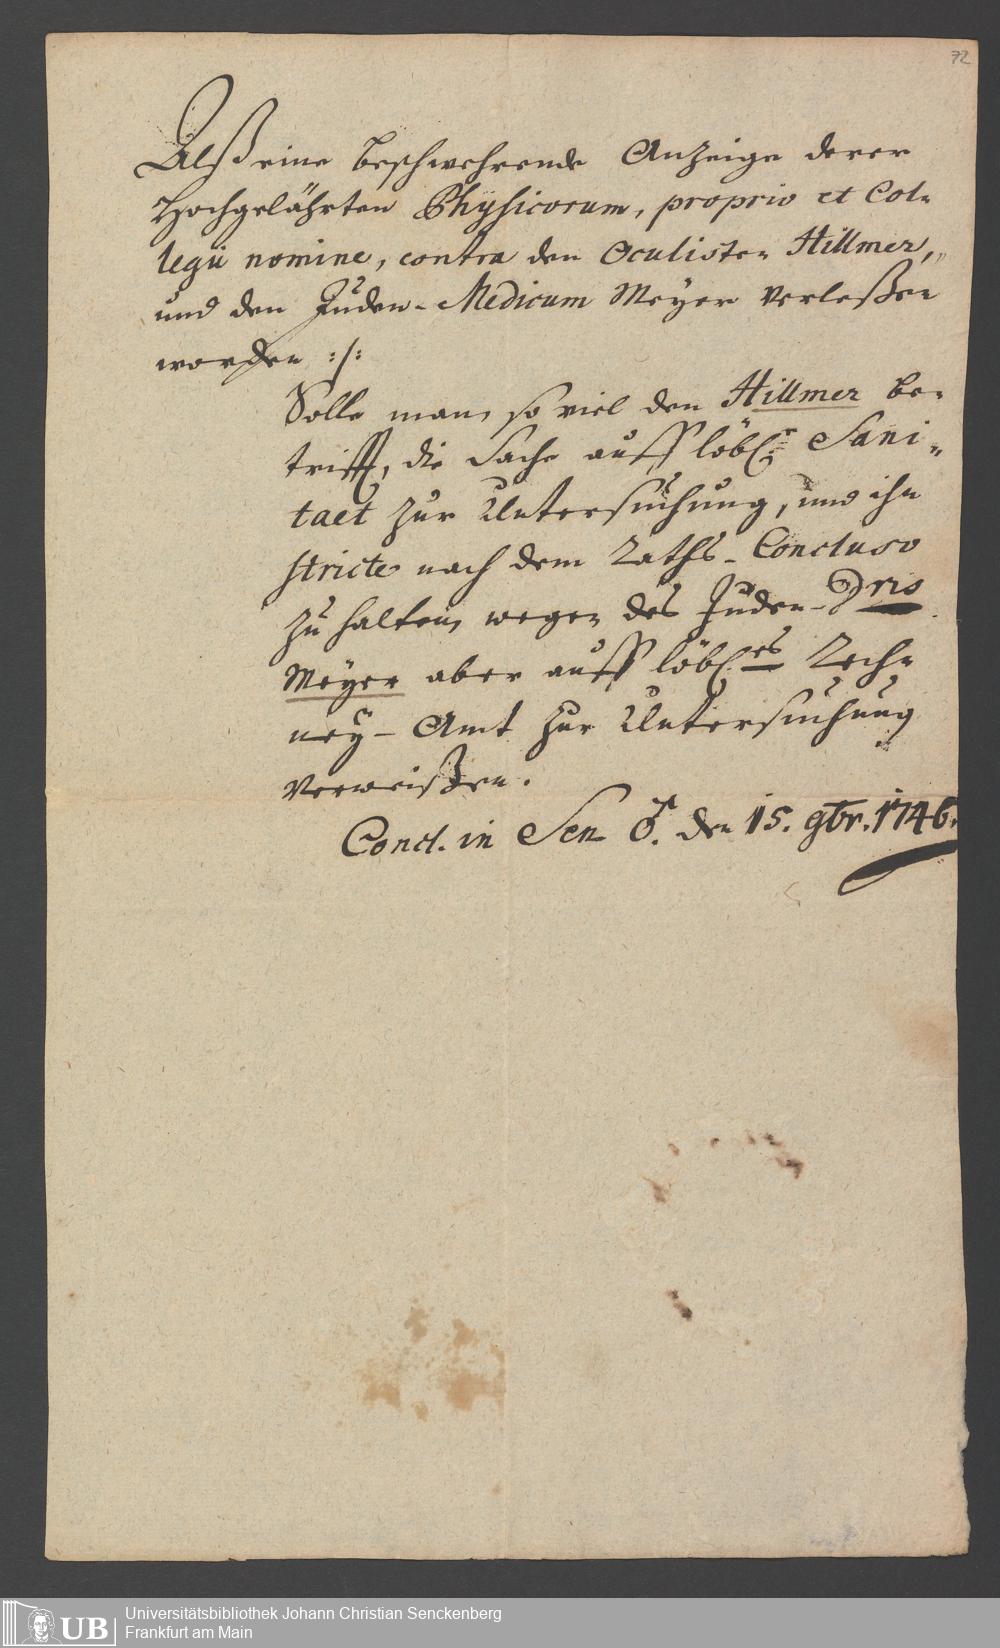 72
Alß eine beschwehrende Anzeige derer
Hochgelährten Physicorum, proprio et Col-
legii nomine, contra den Oculisten Hillmer,
und den Juden-Medicum Meyer verleßen
worden :/:
Solle man, so viel den Hillmer be-
trifft, die Sache auff löbl.r Sani-
taet zur Untersuchung, und ihn
stricte nach dem Raths-Concluso
zu halten, wegen des Juden-Dris
Meyer aber auff löbl.es Rech-
ney-Amt zur Untersuchung
verweißen.
Concl. in Sen ♂. den 15. 9br. 1746.
UB
Universitätsbibliothek Johann Christian Senckenberg
Frankfurt am Main